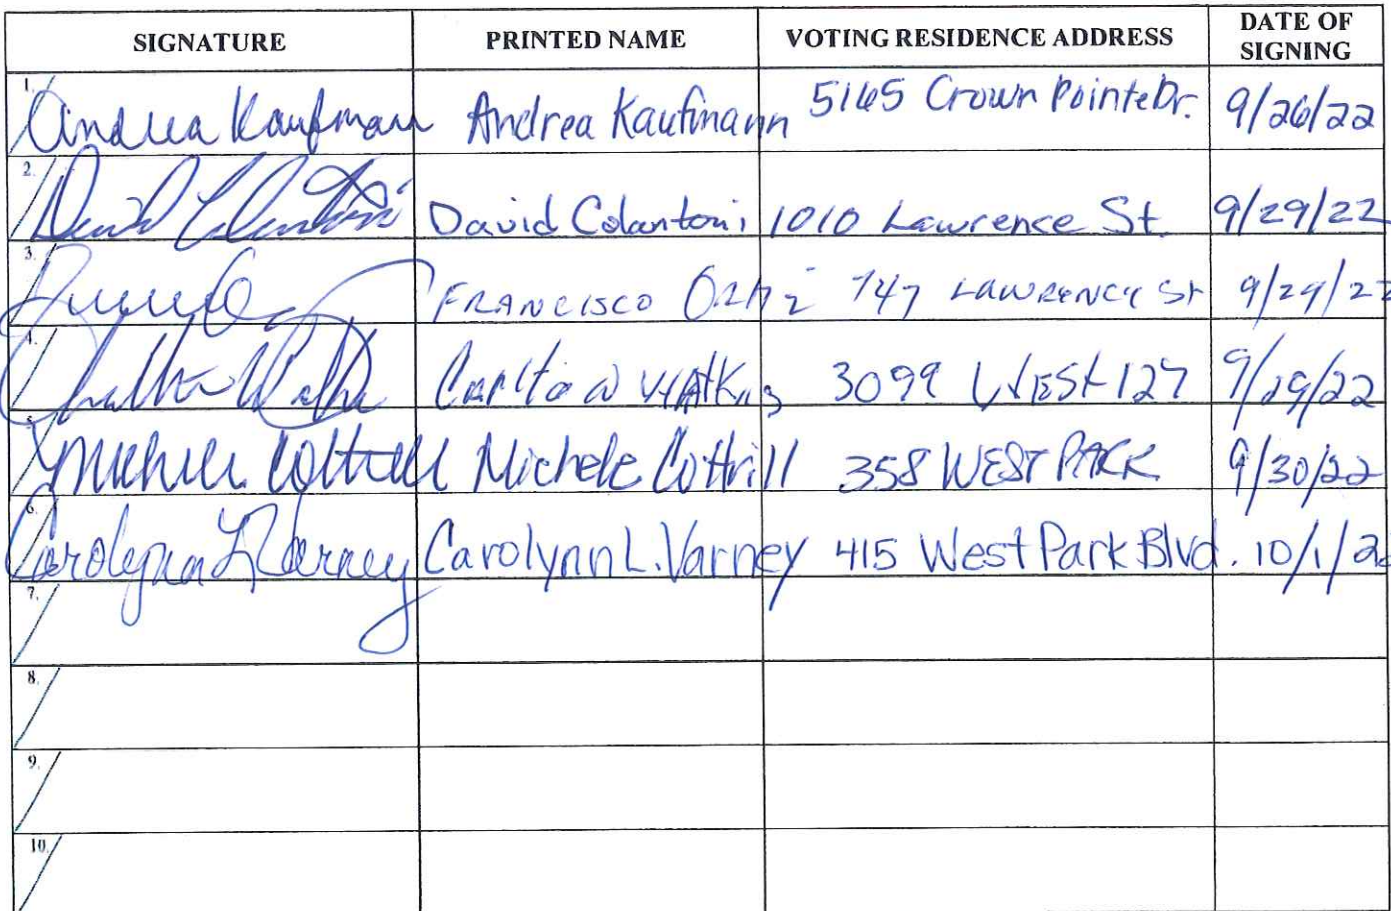 SIGNATURE PRINTED NAME VOTING RESIDENCE ADDRESS DATE OF SIGNING
1. Andrea Kaufmann Andrea Kaufmann 5165 Crown Pointe Dr. 9/26/22
2. David Colantoni David Colantoni 1010 Lawrence St 9/29/22
3. FRANCISCO 747 LAWRENCE St 9/29/22
4. Carlton Watkins 3099 WEST 127 9/29/22
5. Michele Cottrill Michele Cottrill 358 WEST PARK 9/30/22
6. Carolynn L Varney Carolynn L. Varney 415 West Park Blvd. 10/1/22
7.
8.
9.
10.